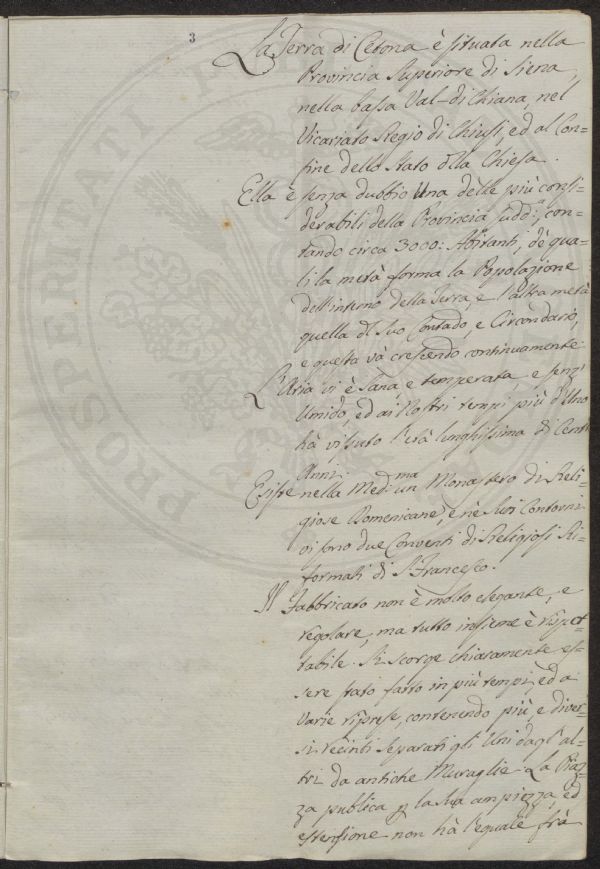 3
La Terra di Cetona è situata nella
Provincia Superiore di Siena,
nella bassa Val-di Chiana, nel
Vicariato Regio di Chiusi, ed al Con-
fine dello Stato della Chiesa.
Ella è senza dubbio Una delle più consi-
derabili della Provincia sudd:ª, con-
tando circa 3000: Abitanti, de' qua-
li la metà forma la Popolazione
dell'interno della Terra, e l'altra metà
quella del Suo Contado, e Circondario,
e questa và crescendo continuamente.
L'Aria vi è Sana e temperata, e senz'
Umido, ed ai Nostri tempi più d'Uno
hà vissuto l'età lunghissima di Cent'
Anni.
Esiste nella Med:ma un Monastero di Reli-
giose Domenicane, e nè Suoi Contorni
vi sono due Conventi di Religiosi Ri-
formati di S. Francesco.
Il Fabbricato non è molto elegante, e
regolare, ma tutto insieme è rispet-
tabile. Si scorge chiaramente es-
sere stato fatto in più tempi, ed a
varie riprese, contenendo più, e diver-
si recinti separati gli Uni dagl'al-
tri da antiche Muraglie. La Piaz-
za publica p la sua ampiezza, ed
estensione non hà l'eguale frà
PROSPERITATI PUBLICAE